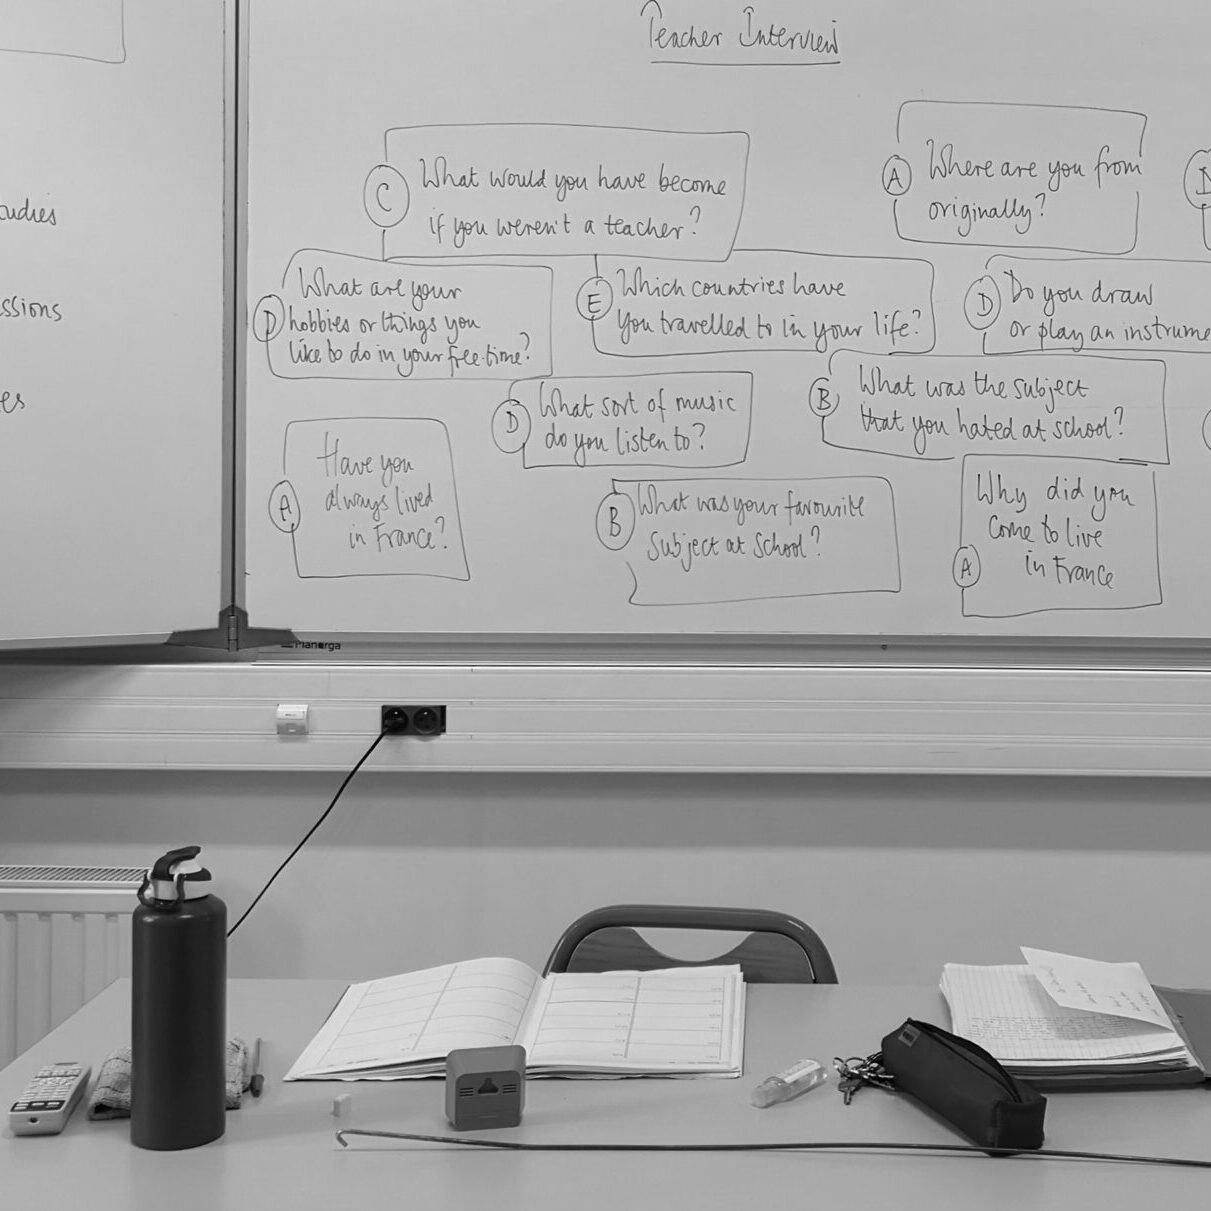 Teacher Interview
C
What would you have become
if you weren't a teacher?
A
Where are you from
originally?
D
What are your
hobbies or things you
like to do in your free-time?
E
Which countries have
you travelled to in your life?
D
Do you draw
or play an instrume
D
What sort of music
do you listen to?
B
What was the subject
that you hated at school?
A
Have you
always lived
in France?
B
What was your favourite
subject at school?
A
Why did you
come to live
in France
udies
ssions
es
Planorga